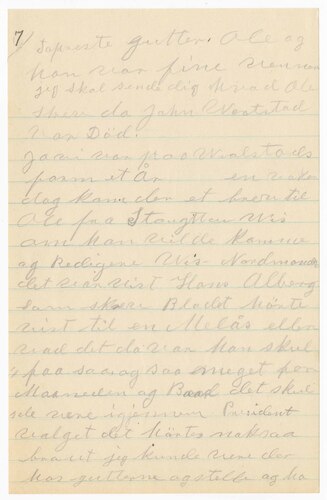 7/
Tapreste gutter. Ole og
han var fine venner
jeg skal sende dig hvad Ole
skrev da John
var Död.
Ja vi var paa Wolstads
farm et År en vaker
dag kom der et brev til
Ole fra Stoughton Wis
om han vilde komme
og Redigere Wis. Nordmanden
det var vist Hans Alberg
som skrev Bladet hörte
vist til en Melås eller
vad det da var han skul
paa saa og saa meget per
Maaneden og Baad det skul
de vere igjennem President
valget det hörtes noksaa
bra ut jeg kunde vere der
hos gutterne og stelle og ha